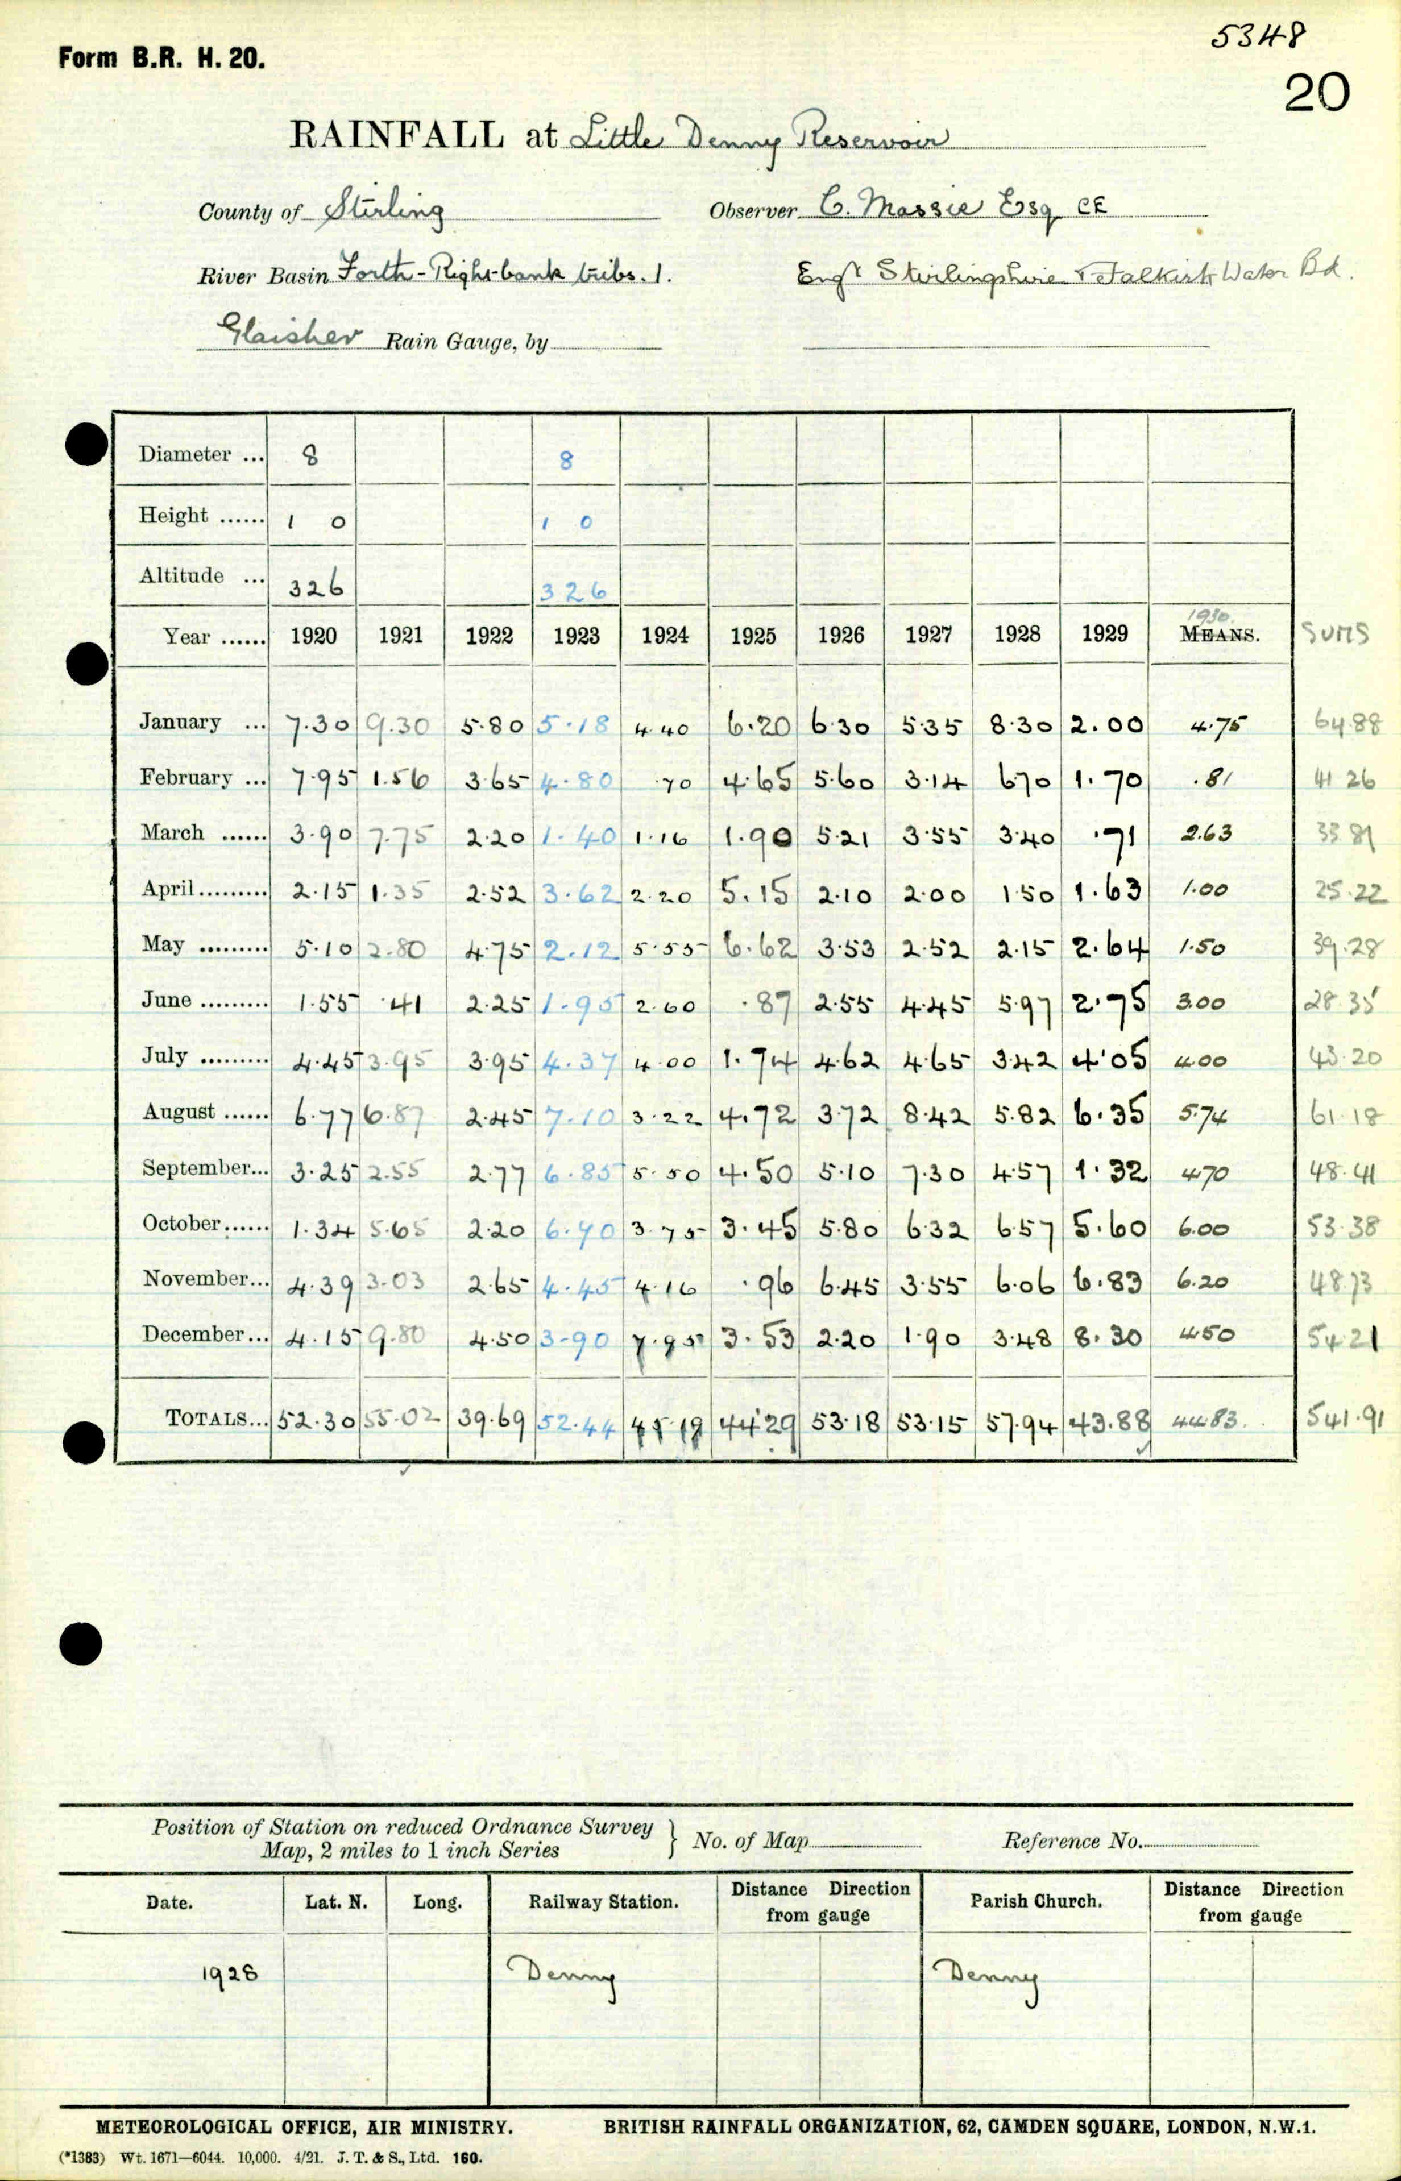 5348
Form B.R. H. 20.
20
RAINFALL at Little Denny Reservoir
County of Stirling Observer C. Massie Esq CE
River Basin Forth - Right bank tribs. 1. Engr Stirlingshire & Falkirk Water Bd.
Glaisher Rain Gauge, by
Diameter ... 8 8
Height ...... 1 0 1 0
Altitude ... 326 326
1930.
Year ...... 1920 1921 1922 1923 1924 1925 1926 1927 1928 1929 MEANS. SUMS
January ... 7.30 9.30 5.80 5.18 4.40 6.20 6.30 5.35 8.30 2.00 4.75 64.88
February ... 7.95 1.56 3.65 4.80 .70 4.65 5.60 3.14 6.70 1.70 .81 41 26
March ...... 3.90 7.75 2.20 1.40 1.16 1.90 5.21 3.55 3.40 .71 2.63 33 81
April ......... 2.15 1.35 2.52 3.62 2.20 5.15 2.10 2.00 1.50 1.63 1.00 25.22
May ......... 5.10 2.80 4.75 2.12 5.55 6.62 3.53 2.52 2.15 2.64 1.50 39.28
June ......... 1.55 .41 2.25 1.95 2.60 .87 2.55 4.45 5.97 2.75 3.00 28.35
July ......... 4.45 3.95 3.95 4.37 4.00 1.74 4.62 4.65 3.42 4.05 4.00 43.20
August ...... 6.77 6.87 2.45 7.10 3.22 4.72 3.72 8.42 5.82 6.35 5.74 61.18
September... 3.25 2.55 2.77 6.85 5.50 4.50 5.10 7.30 4.57 1.32 4.70 48.41
October...... 1.34 5.65 2.20 6.70 3.75 3.45 5.80 6.32 6.57 5.60 6.00 53.38
November... 4.39 3.03 2.65 4.45 4.16 .96 6.45 3.55 6.06 6.83 6.20 48.73
December... 4.15 9.80 4.50 3.90 7.95 3.53 2.20 1.90 3.48 8.30 4.50 54.21
TOTALS... 52.30 55.02 39.69 52.44 45.19 44.29 53.18 53.15 57.94 43.88 44.83. 541.91
Position of Station on reduced Ordnance Survey
Map, 2 miles to 1 inch Series } No. of Map Reference No.
Date. Lat. N. Long. Railway Station. Distance Direction from gauge Parish Church. Distance Direction from gauge
1928 Denny Denny
METEOROLOGICAL OFFICE, AIR MINISTRY. BRITISH RAINFALL ORGANIZATION, 62, CAMDEN SQUARE, LONDON, N.W.1.
(*1383) Wt. 1671—6044. 10,000. 4/21. J. T. & S., Ltd. 160.